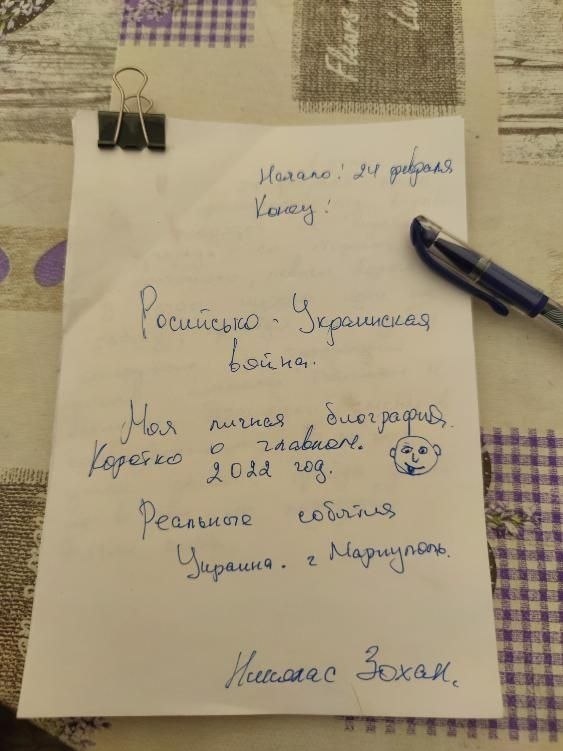 Fleurs
Lu
Начало! 24 февраля
Конец!
Росийсько - Украинская
война.
Моя личная биография.
Коротко о главном.
2022 год.
Реальные события
Украина. г Мариуполь.
Николас Зохан.